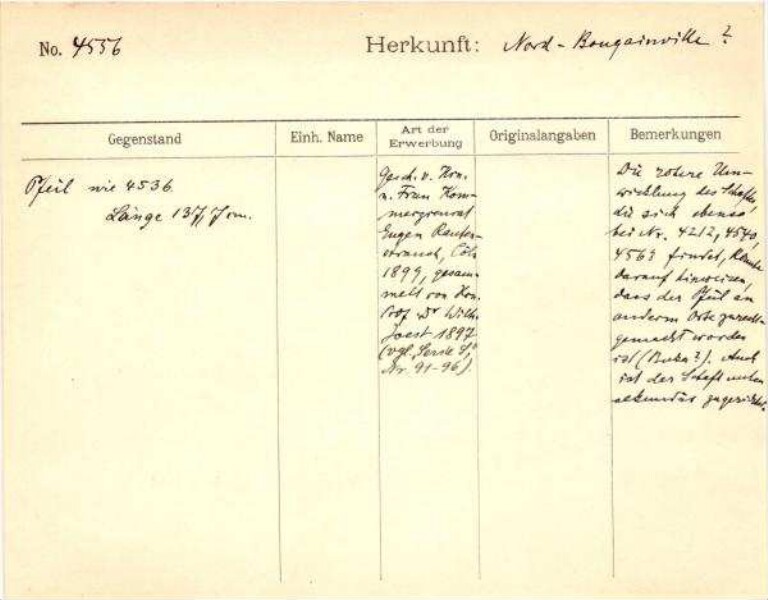 No. 4556 Herkunft: Nord-Bougainville?
Gegenstand
Einh. Name
Art der Erwerbung
Originalangaben
Bemerkungen
Pfeil wie 4536.
Länge 137,7 cm.
Gesch. v. Hrn.
u. Frau Kom-
merzienrat
Eugen Rauten-
strauch, Cöln
1899, gesam-
melt von Hrn.
Prof Dr Wilh.
Joest 1897
(vgl. Serie S,
Nr. 91-96).
Die rotere Um-
wicklung des Schaftes,
die sich ebenso
bei Nr. 4212, 4540,
4563 findet, könnte
darauf hinweisen,
dass der Pfeil an
anderm Orte zurecht-
gemacht worden
ist (Buka?). Auch
ist der Schaft unten
sekundär zugerichtet.